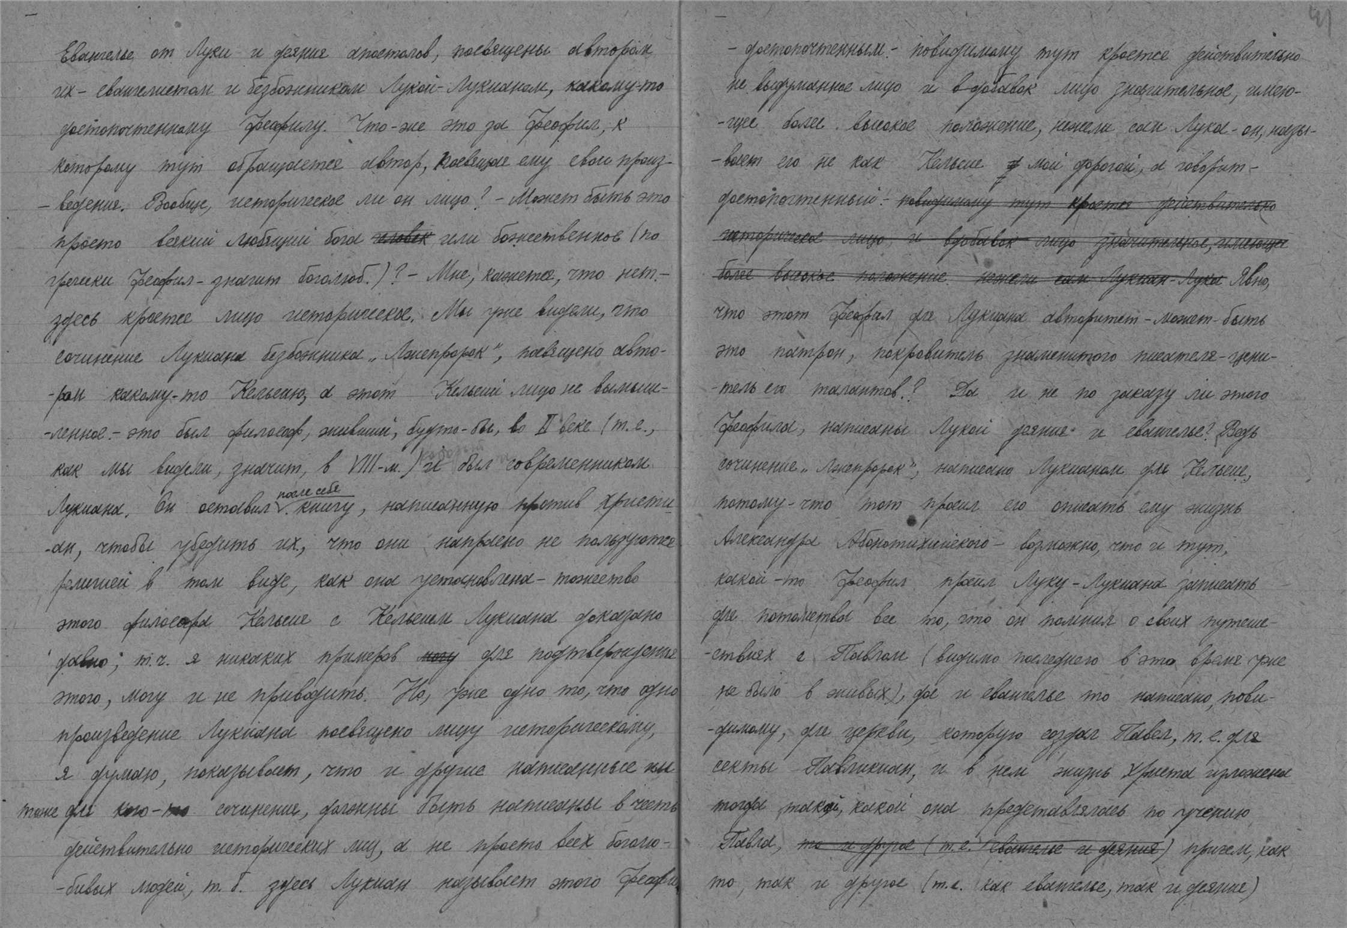 Евангелье от Луки и деяние апостолов, посвящены автором
их - евангелистом и безбожником Лукой-Лукианом, какому-то
достопочтенному Феофилу. Что-же это за Феофил, к
которому тут обращается автор, посвящая ему свои произ-
-ведения. Вообще, историческое ли он лицо? - Может быть это
просто всякий любящий бога человек или божественное (по
гречески Феофил - значит боголюб.)? - Мне, кажется, что нет. -
здесь кроется лицо историческое. Мы уже видели, что
сочинение Лукиана безбожника „Лжепророк", посвящено авто-
-ром какому-то Кельсию, а этот Кельсий лицо не вымыш-
-ленное. - это был философ, живший, будто-бы, во II веке (т.е.,
как мы видели, значит, в VIII-м.) и был современником
Лукиана. Он оставил после себе книгу, написанную против христи-
-ан, чтобы убедить их, что они напрасно не пользуются
религией в том виде, как она установлена - тожество
этого философа Кельсия с Кельсием Лукиана доказано
давно; т.ч. я никаких примеров могу для подтверждения
этого, могу и не приводить. Но, уже одно то, что одно
произведение Лукиана посвящено лицу историческому,
я думаю, показывает, что и другие написанные им
тоже для кого-то сочинения, должны быть написаны в честь
действительно исторических лиц, а не просто всех боголю-
-бивых людей, т.б. здесь Лукиан называет этого Феофи
- достопочтенным. - повидимому тут кроется действительно
не выдуманное лицо и в-добавок лицо значительное, имею-
-щее более высокое положение, нежели сам Лука - он, назы-
-вает его не как Кельсия мой дорогой, а говорит -
достопочтенный - повидимому тут кроется действительно
историческое лицо, и вдобавок лицо значительное, имеющее
более высокое положение нежели сам Лукиан-Лука Явно,
что этот Феофил для Лукиана авторитет - может-быть
это патрон, покровитель знаменитого писателя - цени-
-тель его талантов? Да и не по заказу ли этого
Феофила, написаны Лукой деяния и евангелье? Ведь
сочинение „Лжепророк", написано Лукианом для Кельсия,
потому-что тот просил его описать ему жизнь
Александра Абонотихийского - возможно, что и тут,
какой-то Феофил просил Луку-Лукиана записать
для потомства все то, что он помнил о своих путеше-
-ствиях с Павлом (видимо последнего в это время уже
не было в живых), да и евангелье то написано, пови-
-димому, для церкви, которую создал Павел, т.е. для
секты Павликиан, и в нем жизнь Христа изложена
тогда такой, какой она представлялась по учению
Павла, то и другое (т.е. евангелье и деяния) причем, как
то, так и другое (т.е. как евангелье, так и деяние)